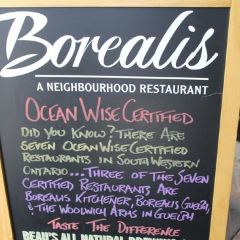 Borealis
A NEIGHBOURHOOD RESTAURANT
OCEAN WISE CERTIFIED
DID YOU KNOW? THERE ARE
SEVEN OCEAN WISE CERTIFIED
RESTAURANTS IN SOUTH WESTERN
ONTARIO... THREE OF THE SEVEN
CERTIFIED RESTAURANTS ARE
BOREALIS KITCHENER, BOREALIS GUELPH,
& THE WOOLWICH ARMS IN GUELPH
TASTE THE DIFFERENCE
BEAU'S ALL NATURAL BREWING